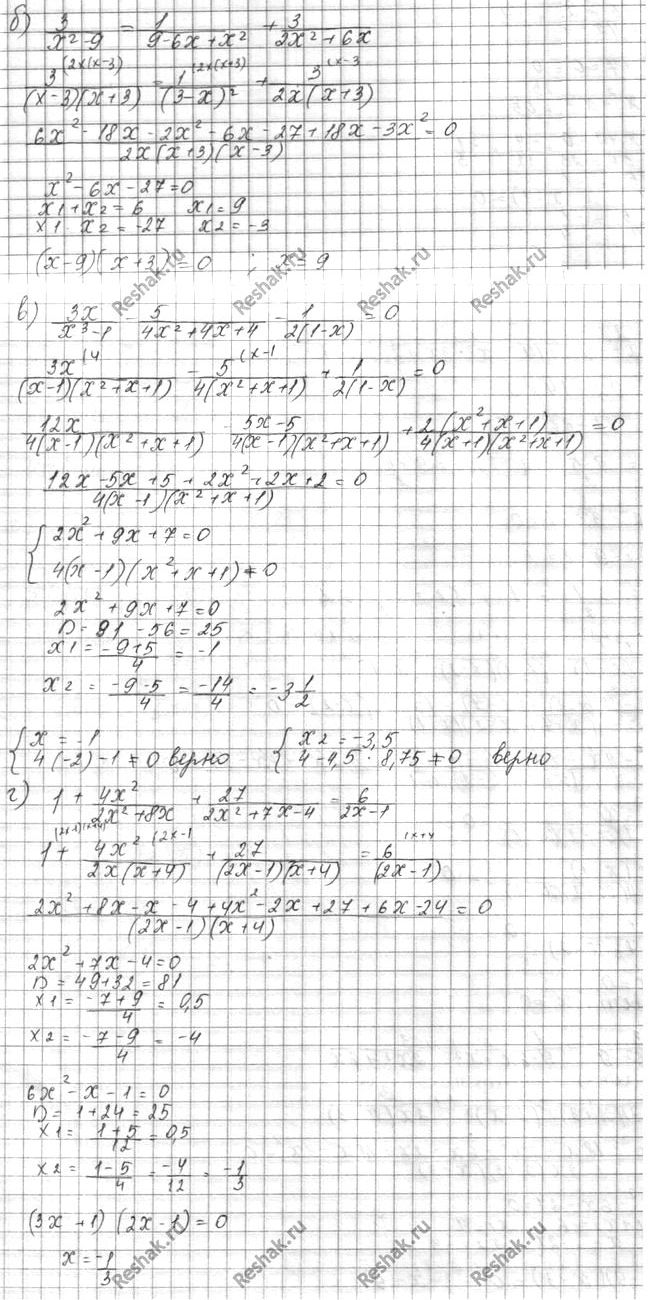 б) 3/(x²-9) = 1/(9-6x+x²) + 3/(2x²+6x)
3^(2x(x-3)/((x-3)(x+3)) = 1^(2x(x+3)/(3-x)² + 3^(x-3/(2x(x+3))
(6x²-18x-2x²-6x-27+18x-3x²)/(2x(x+3)(x-3)) = 0
x²-6x-27=0
x1+x2=6 x1=9
x1·x2=-27 x2=-3
(x-9)(x+3)=0 ; x=9
в) 3x/(x³-1) - 5/(4x²+4x+4) - 1/(2(1-x)) = 0
3x^(4/((x-1)(x²+x+1)) - 5^(x-1/(4(x²+x+1)) + 1/(2(1-x)) = 0
12x/(4(x-1)(x²+x+1)) - (5x-5)/(4(x-1)(x²+x+1)) + 2(x²+x+1)/(4(x+1)(x²+x+1)) = 0
(12x-5x+5+2x²+2x+2)/(4(x-1)(x²+x+1)) = 0
{ 2x²+9x+7=0
4(x-1)(x²+x+1)≠0
2x²+9x+7=0
D=81-56=25
x1=(-9+5)/4=-1
x2=(-9-5)/4=-14/4=-3 1/2
{ x=-1 { x2=-3,5
4(-2)-1≠0 верно 4-4,5·8,75≠0 верно
г) 1 + 4x²/(2x²+8x) + 27/(2x²+7x-4) = 6/(2x-1)
1^(2x-1)(x+4) + 4x²^(2x-1/(2x(x+4)) + 27/((2x-1)(x+4)) = 6^(x+4/(2x-1)
(2x²+8x-x-4+4x²-2x+27+6x-24)/((2x-1)(x+4)) = 0
2x²+7x-4=0
D=49+32=81
x1=(-7+9)/4=0,5
x2=(-7-9)/4=-4
6x²-x-1=0
D=1+24=25
x1=(1+5)/12=0,5
x2=(1-5)/4=-4/12=-1/3
(3x+1)(2x-1)=0
x=-1/3
Reshak.ru
Reshak.ru
Reshak.ru
Reshak.ru
Reshak.ru
Reshak.ru
Reshak.ru
Reshak.ru